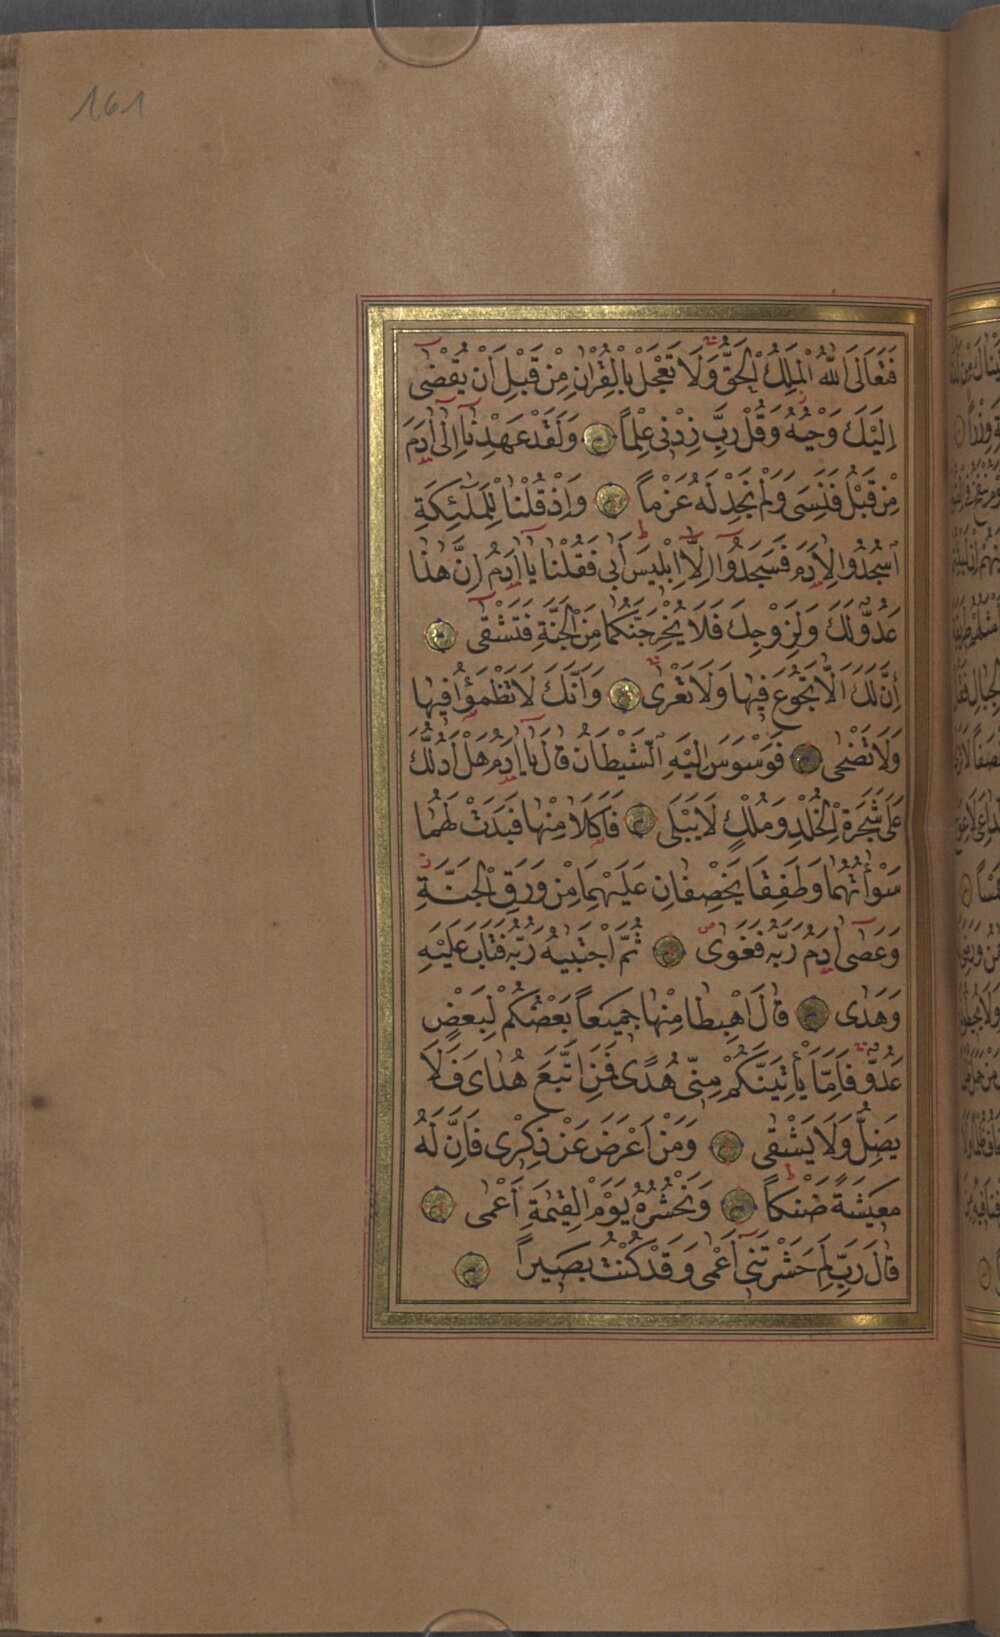 161
فَتَعَالَى اللّٰهُ الْمَلِكُ الْحَقُّ وَلَا تَعْجَلْ بِالْقُرْاٰنِ مِنْ قَبْلِ اَنْ يُقْضٰى
اِلَيْكَ وَحْيُهُ وَقُلْ رَبِّ زِدْنٖى عِلْمًا وَلَقَدْ عَهِدْنَا اِلٰى اٰدَمَ
مِنْ قَبْلُ فَنَسِىَ وَلَمْ نَجِدْ لَهُ عَزْمًا وَاِذْ قُلْنَا لِلْمَلٰٓئِكَةِ
اسْجُدُوا لِاٰدَمَ فَسَجَدُٓوا اِلَّٓا اِبْلٖيسَ اَبٰى فَقُلْنَا يَٓا اٰدَمُ اِنَّ هٰذَا
عَدُوٌّ لَكَ وَلِزَوْجِكَ فَلَا يُخْرِجَنَّكُمَا مِنَ الْجَنَّةِ فَتَشْقٰى
اِنَّ لَكَ اَلَّا تَجُوعَ فٖيهَا وَلَا تَعْرٰى وَاَنَّكَ لَا تَظْمَؤُا فٖيهَا
وَلَا تَضْحٰى فَوَسْوَسَ اِلَيْهِ الشَّيْطَانُ قَالَ يَٓا اٰدَمُ هَلْ اَدُلُّكَ
عَلٰى شَجَرَةِ الْخُلْدِ وَمُلْكٍ لَا يَبْلٰى فَاَكَلَا مِنْهَا فَبَدَتْ لَهُمَا
سَوْاٰتُهُمَا وَطَفِقَا يَخْصِفَانِ عَلَيْهِمَا مِنْ وَرَقِ الْجَنَّةِ
وَعَصٰٓى اٰدَمُ رَبَّهُ فَغَوٰى ثُمَّ اجْتَبٰيهُ رَبُّهُ فَتَابَ عَلَيْهِ
وَهَدٰى قَالَ اهْبِطَا مِنْهَا جَمٖيعًا بَعْضُكُمْ لِبَعْضٍ
عَدُوٌّ فَاِمَّا يَأْتِيَنَّكُمْ مِنّٖى هُدًى فَمَنِ اتَّبَعَ هُدَاىَ فَلَا
يَضِلُّ وَلَا يَشْقٰى وَمَنْ اَعْرَضَ عَنْ ذِكْرٖى فَاِنَّ لَهُ
مَعٖيشَةً ضَنْكًا وَنَحْشُرُهُ يَوْمَ الْقِيٰمَةِ اَعْمٰى
قَالَ رَبِّ لِمَ حَشَرْتَنٖٓى اَعْمٰى وَقَدْ كُنْتُ بَصٖيرًا